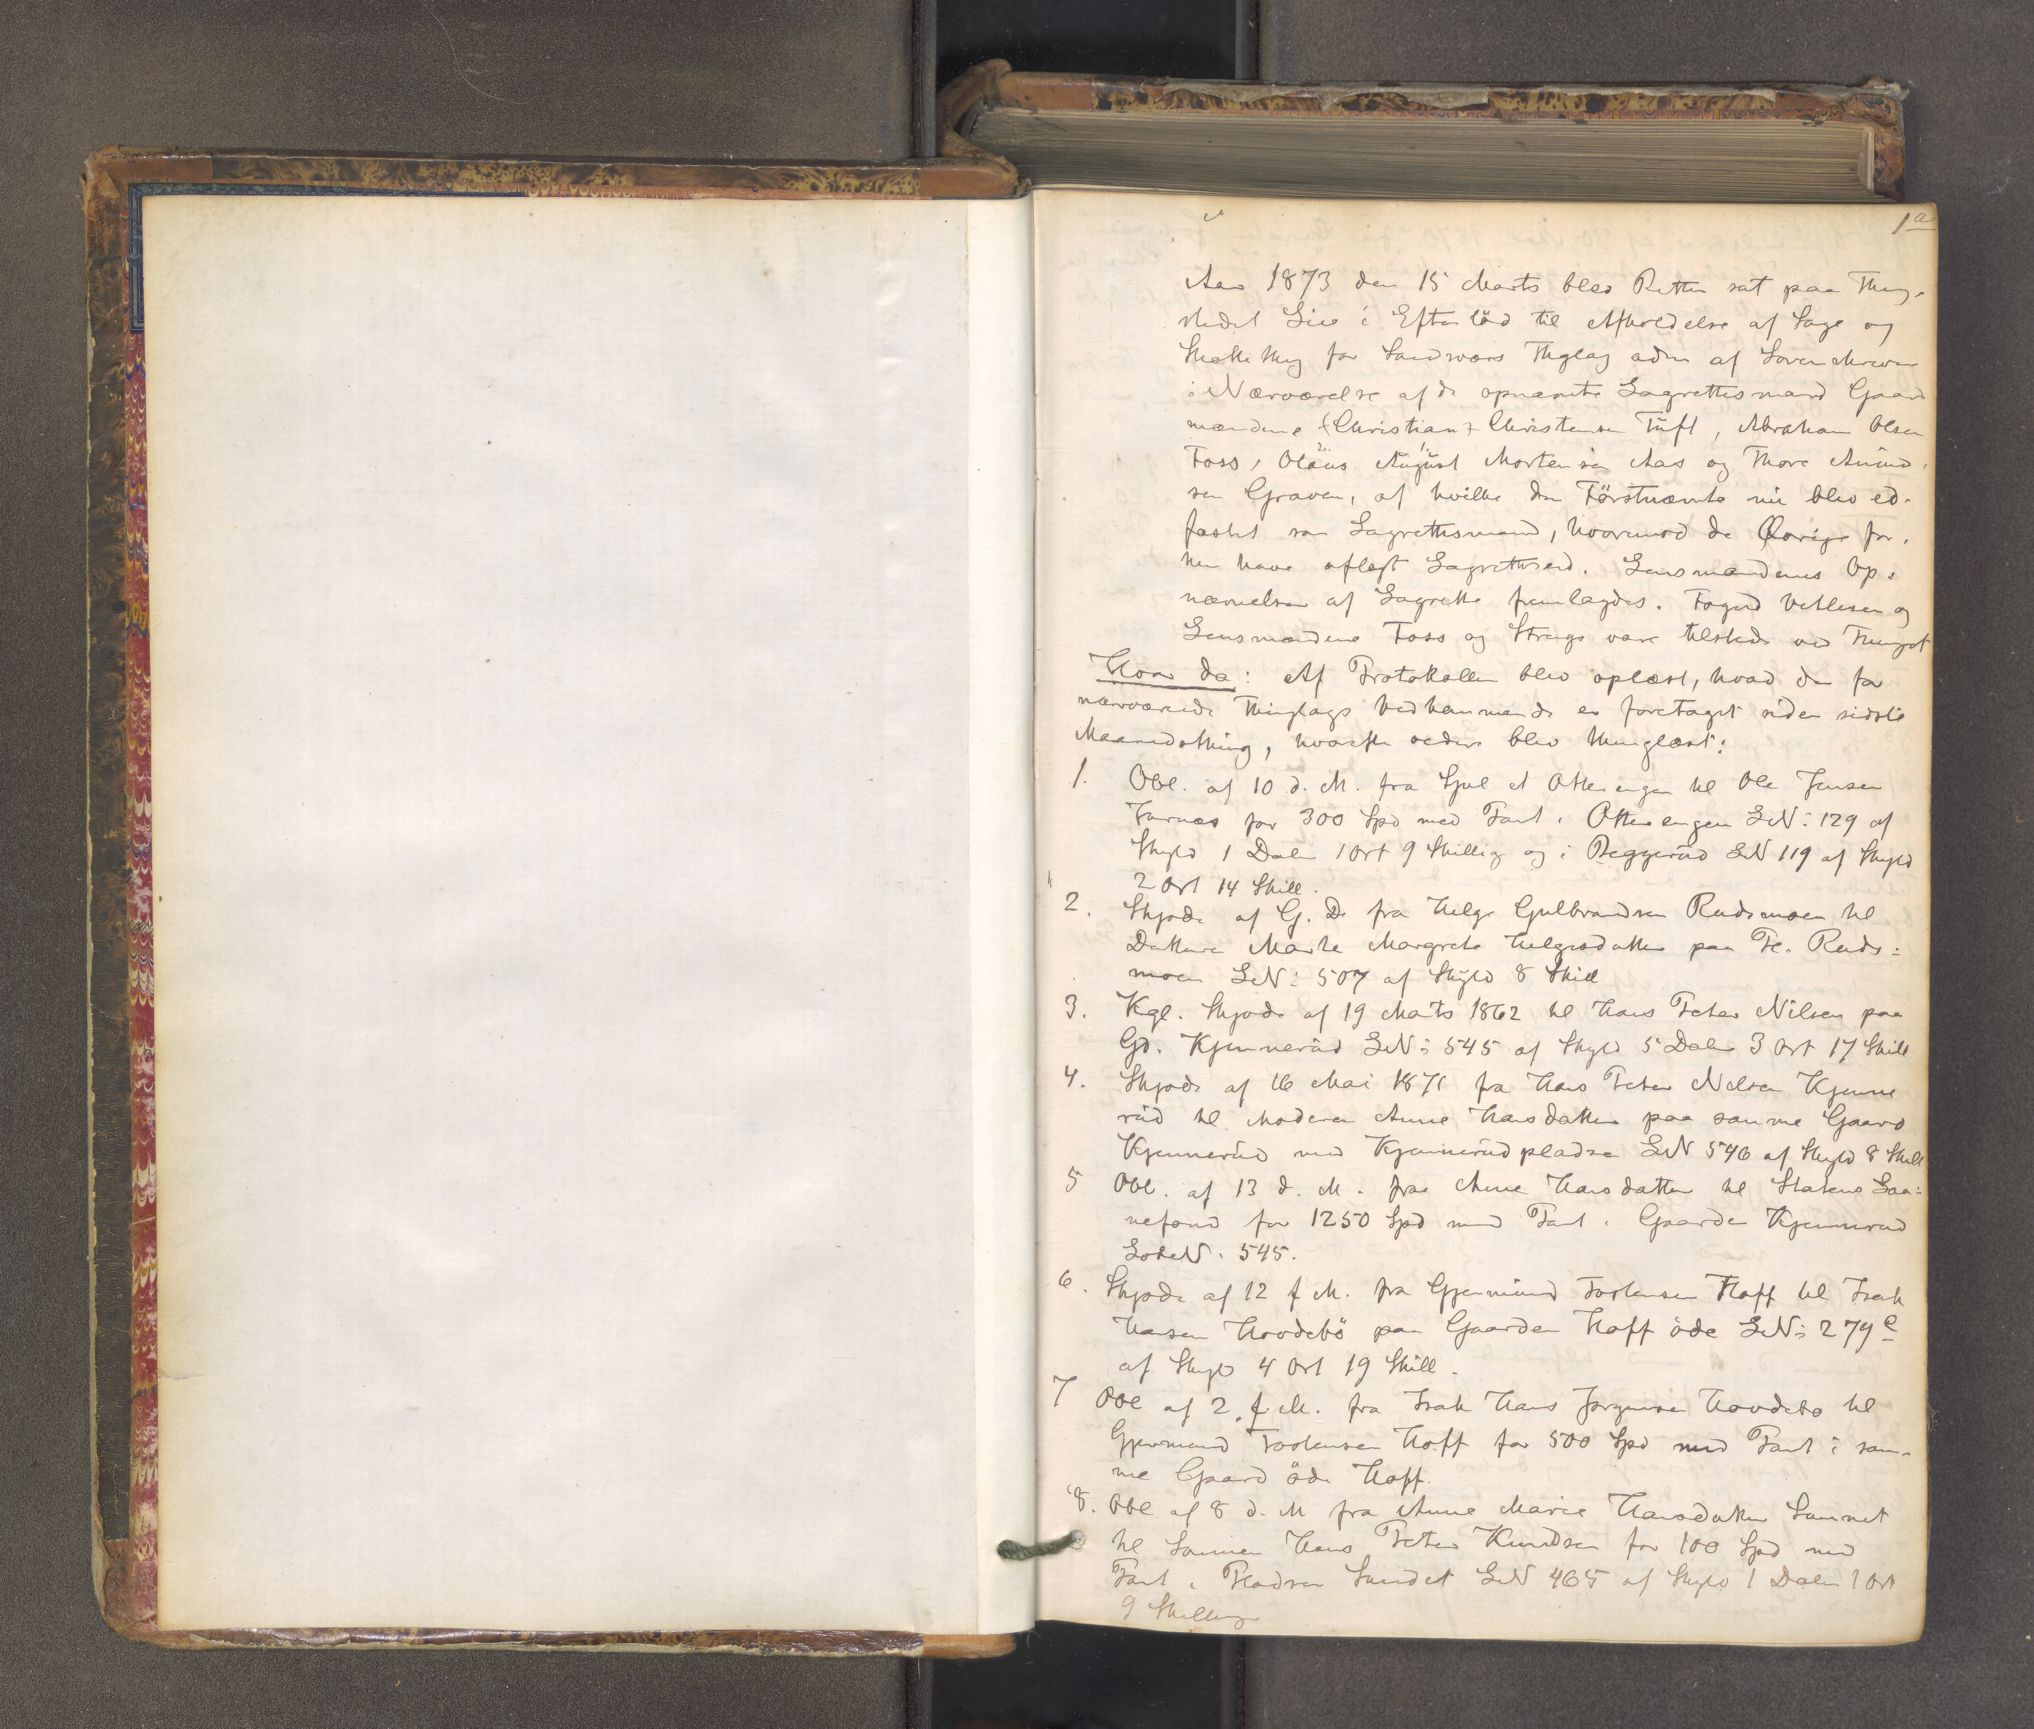 1a
Aar 1873 den 15 Marts blev Retten sat paa Thing-
stedet Lie i Efterlöd til Afholdelse af Sage og
Skatte thing for Sandsværs Thglag adm af Sorenskriveren
i Nærværelse af de opnævnte Lagrettesmænd Gaard
mændene (Christian) Christensen Tuft, Abraham Olsen
Foss, Olaus August Mortensen Aas og Thore Amund-
sen Graven, af hvilke den Förstnævnte nu blev ed-
fæstet som Lagrettesmand, hvorimod de Øvrige for-
hen have aflagt Lagrettesed. Lensmændenes Op-
nævnelser af Lagrette fremlagdes. Foged Vetlesen og
Lensmændene Foss og Strange vare tilstede ved Thinget
Hvor da: Af Protokollen blev oplæst, hvad der for
nærværende Thinglags Vedkommende er foretaget siden sidste
Maanedsthing, hvorefter videre blev thinglæst:
1. Obl. af 10 d. M. fra Gjul et Ottersengen til Ole Jensen
Furnæs for 300 Spd med Pant i Ottersengen LN: 129 af
Skyld 1 Daler 1 Ort 9 Skillig og i Beggerud LN 119 af Skyld
2 Ort 14 Skill.
2. Skjøde af G. D. fra Helge Gulbrandsen Rudsmoen til
Datteren Marte Margrete Helgesdatter paa Pl. Ruds-
moen LN: 507 af Skyld 8 Skill
3. Kgl. Skjøde af 19 Marts 1862 til Hans Peter Nilsen paa
Gd. Kjennerud LN: 545 af Skyld 5 Daler 3 Ort 17 Skill
4. Skjøde af 16 Mai 1871 fra Hans Peter Nelsen Kjenne
rud til Moderen Anne Hansdatter paa samme Gaard
Kjennerud med Kjennerudpladsen LN 546 af Skyld 8 Skill
5 Obl. af 13 d. M. fra Anne Hansdatter til Statens Laa-
nefond for 1250 Spd med Pant i Gaarden Kjennerud
LobeN. 545.
6. Skjøde af 12 f M. fra Gjermund Torstensen Hoff til Isak
Hansen Hovdebö paa Gaarden Hoff öde LN: 279 e
af Skyld 4 Ort 19 Skill.
7 Obl af 2. f M. fra Isak Hans Jørgensen Hovdebo til
Gjermund Torstensen Hoff for 500 Spd med Pant i sam-
me Gaard öde Hoff.
8. Obl af 8 d. M fra Anne Marie Hansdatter Sunnet
til Sønnen Hans Peter Knudsen for 100 Spd med
Pant i Pladsen Sundet LN 465 af Skyld 1 Daler 1 Ort
9 Skilling